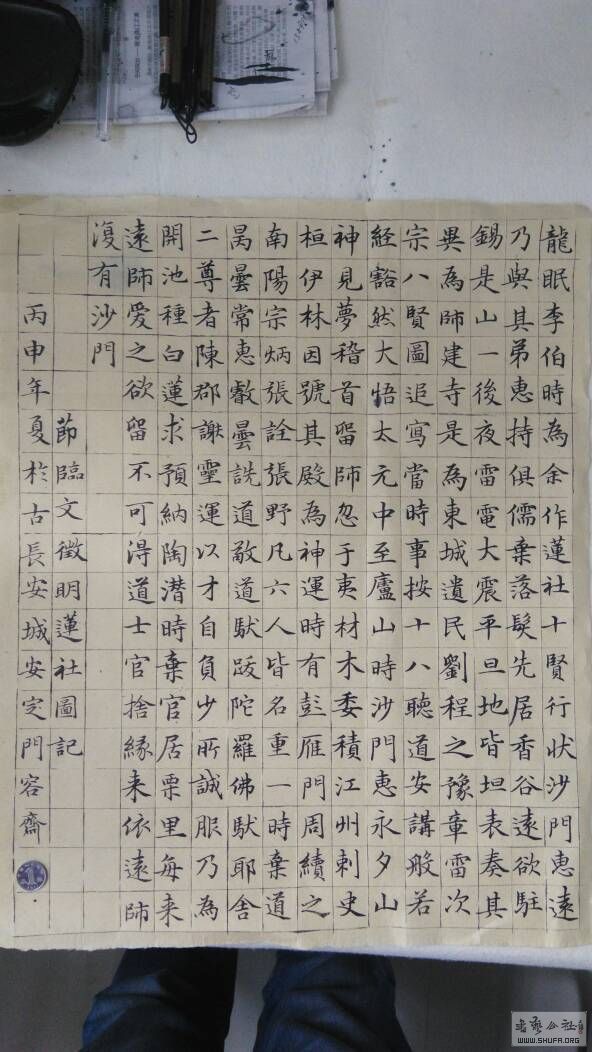 龍眠李伯時為余作蓮社十賢行狀沙門惠遠
乃與其弟惠持俱儒棄落髮先居香谷遠欲駐
錫是山一後夜雷電大震平旦地皆坦表奏其
異為師建寺是為東城遺民劉程之豫章雷次
宗八賢圖追寫當時事按十八聽道安講般若
経豁然大悟太元中至廬山時沙門惠永夕山
神見夢稽首留師忽于夷材木委積江州刺史
桓伊林因號其殿為神運時有彭雁門周續之
南陽宗炳張詮張野凡六人皆名重一時棄道
昺曇常惠叡曇詵道敬道馱跋陀羅佛馱耶舍
二尊者陳郡謝靈運以才自負少所誠服乃為
開池種白蓮求預納陶潛時棄官居栗里每来
遠師愛之欲留不可得道士官捨緣来依遠師
復有沙門
節臨文徵明蓮社圖記
丙申年夏於古長安城安定門容齋
書藝公社
WWW.SHUFA.ORG